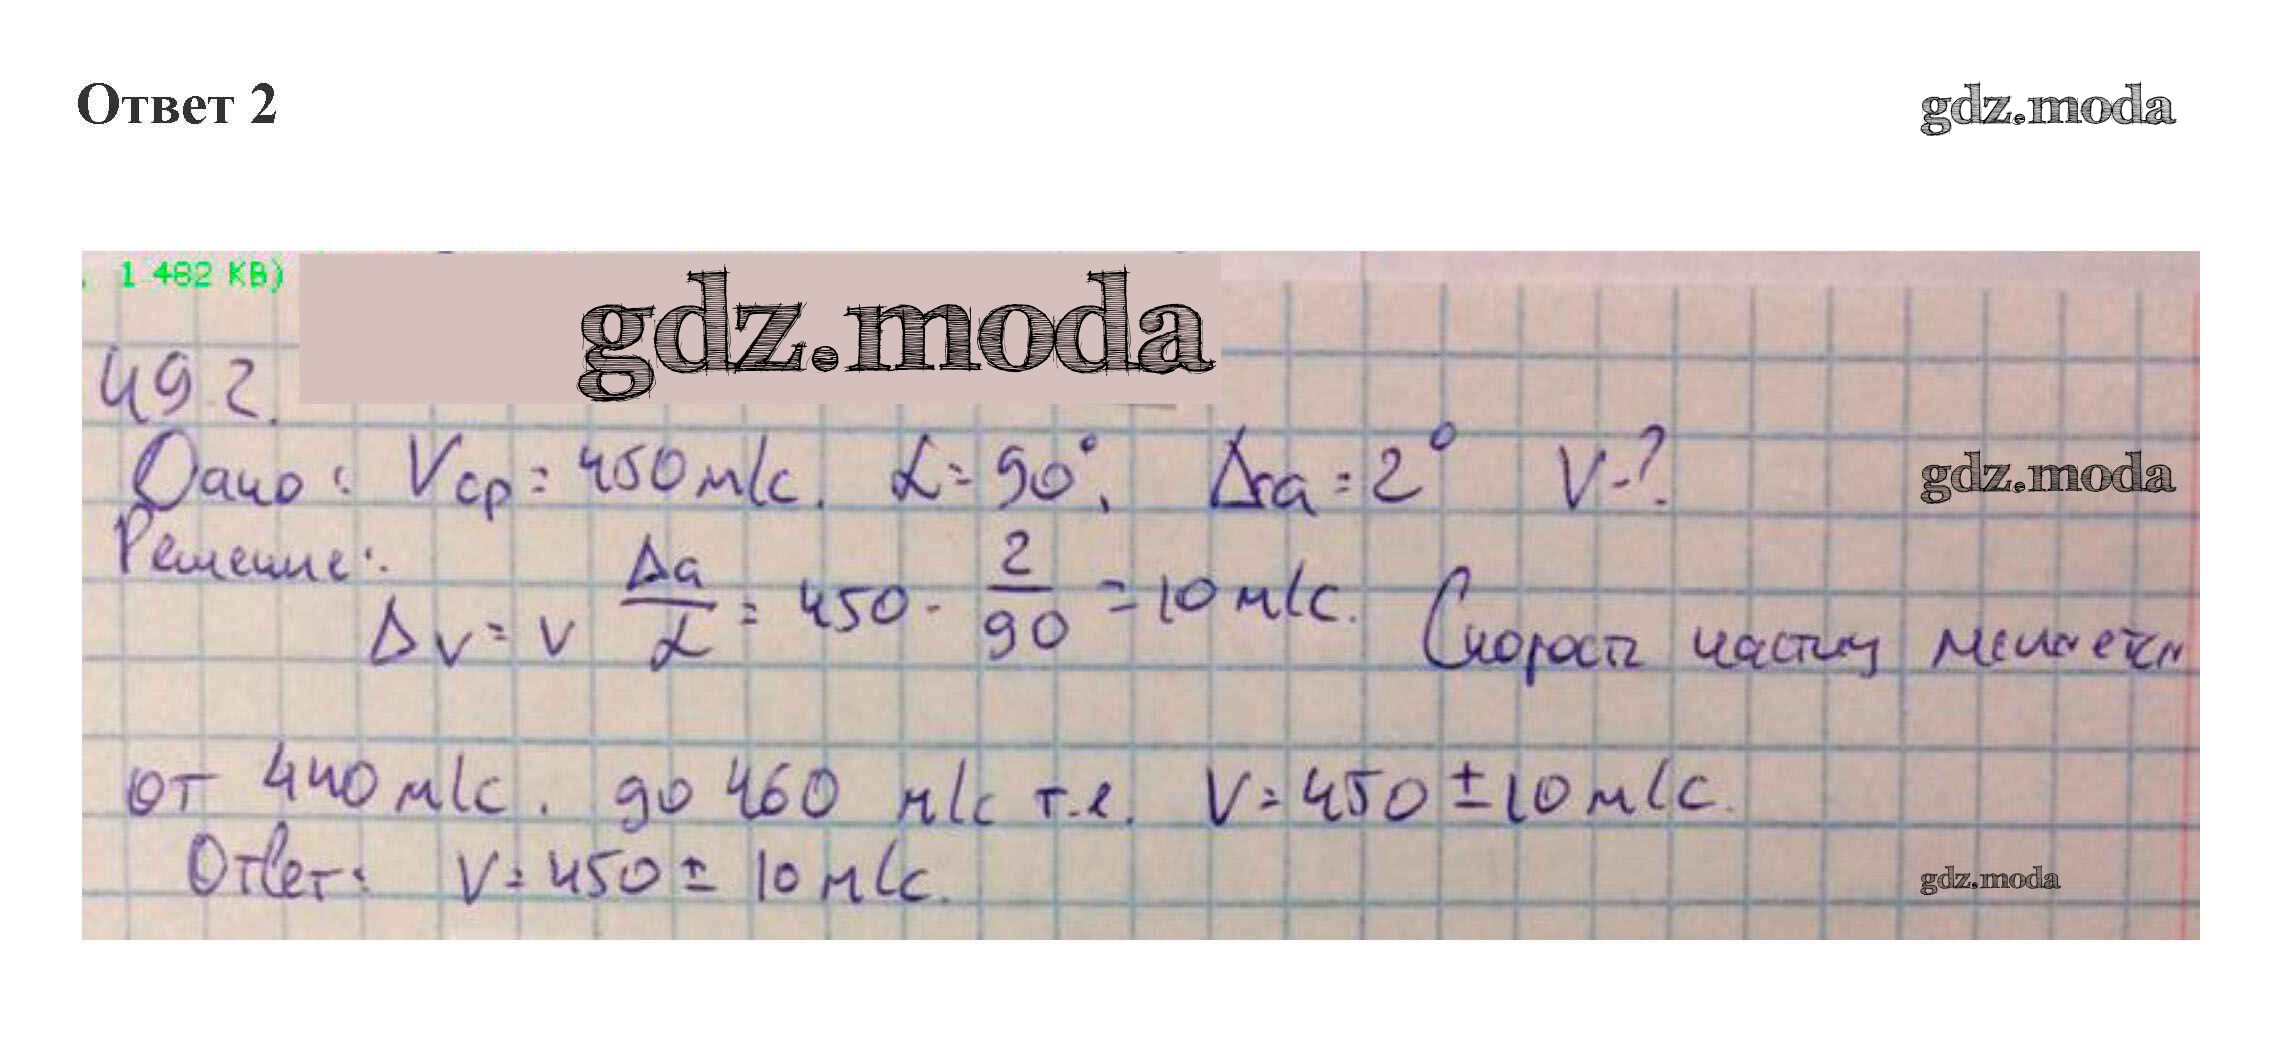 Ответ 2
gdz.moda
1 482 KB)
gdz.moda
492.
Дано: Vср = 450 м/с. α = 90°, Δra = 2° V-?
gdz.moda
Решение:
Δv = v Δa/α = 450 · 2/90 = 10 м/с. Скорость частиц меняется
от 440 м/с. до 460 м/с т.е. V = 450 ± 10 м/с.
Ответ: V = 450 ± 10 м/с.
gdz.moda